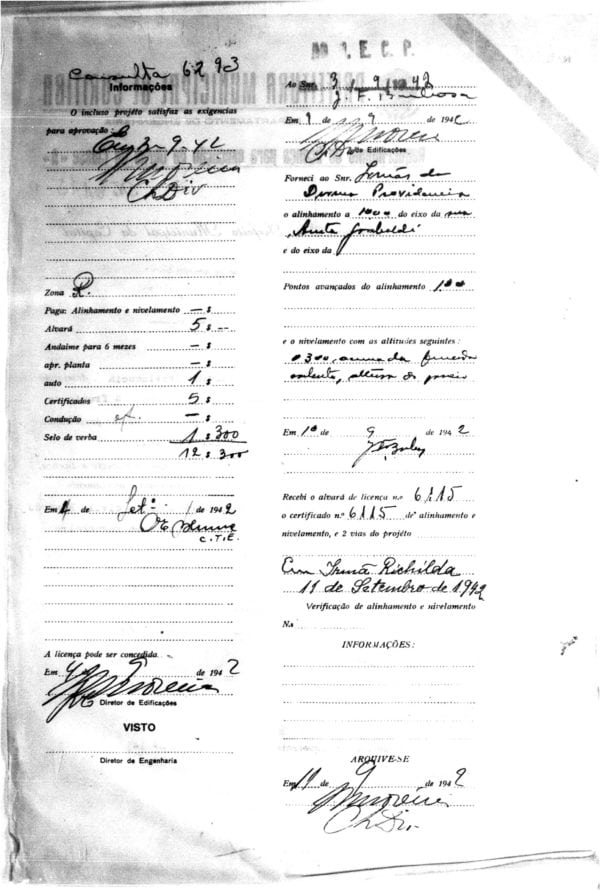 Consulta 6293
Informações
O incluso projéto satisfaz as exigencias
para aprovação:
Em 3-9-42
Ch Div
Zona R.
Paga: Alinhamento e nivelamento — $
Alvará 5 $ --
Andaime para 6 mezes — $
apr. planta — $
auto 1 $
Certificados 5 $
Condução — $
Selo de verba 1 $ 300
12 $ 300
Em 4 de Setº de 1942
C.T.E.
A licença pode ser concedida.
Em 4 de 9 de 1942
Diretor de Edificações
VISTO
Diretor de Engenharia
Ao Snr.
Em 9 de 9 de 194
Ch Div de Edificações
Forneci ao Snr. Irmãs da
Divina Providencia
o alinhamento a 10 00 do eixo da rua
Anita Garibaldi
e do eixo da
Pontos avançados do alinhamento 1,00
e o nivelamento com as altitudes seguintes:
0 300 acima da
altura do
Em 10 de 9 de 1942
Recebi o alvará de licença n.o 6115
o certificado n.º 6115 de alinhamento e
nivelamento, e 2 vias do projéto
Irmã Richilda
11 de Setembro de 1942
Verificação de alinhamento e nivelamento
N.o
INFORMAÇÕES:
ARQUIVE-SE
Em 11 de 9 de 1942
Ch Div.